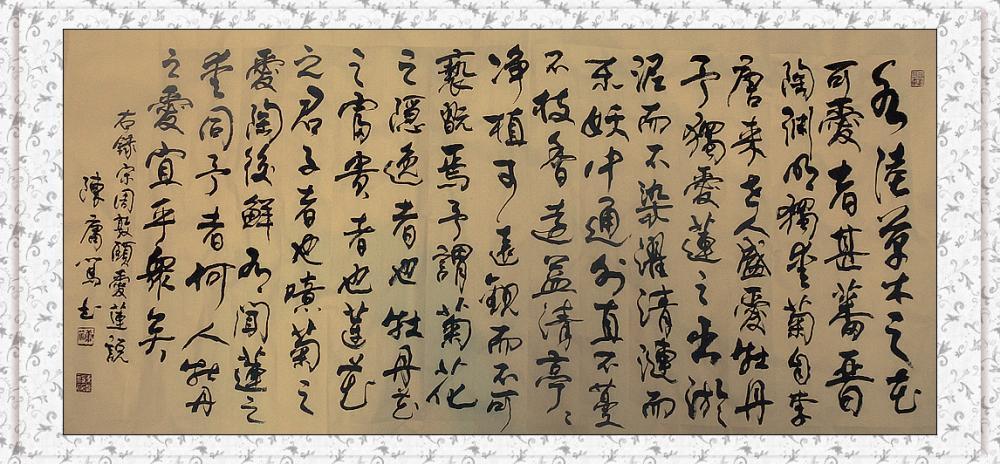 水陸草木之花
可愛者甚蕃晉
陶淵明獨愛菊自李
唐来世人盛愛牡丹
予獨愛蓮之出淤
泥而不染濯清漣而
不妖中通外直不蔓
不枝香遠益清亭々
净植可遠觀而不可
褻翫焉予謂菊花
之隱逸者也牡丹花
之富貴者也蓮花
之君子者也噫菊之
愛陶後鮮有聞蓮之
愛同予者何人牡丹
之愛宜乎衆矣
右錄宋周敦頤愛蓮說
陳庸篤